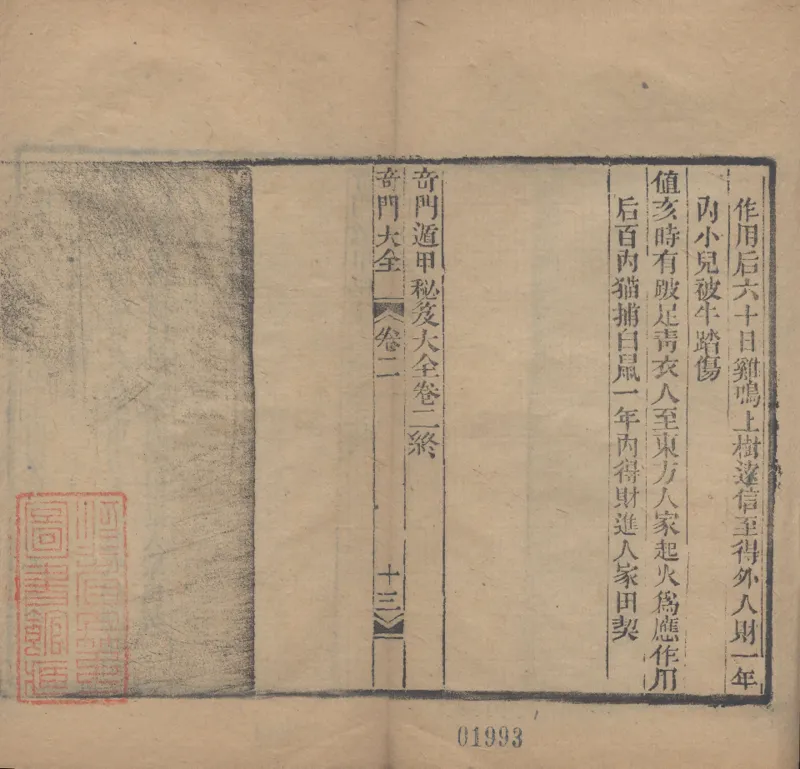 作用后六十日雞鳴上樹遠信至得外人財一年
內小兒被牛踏傷
值亥時有跛足靑衣人至東方人家起火為應作用
后百內猫捕白鼠一年內得財進人家田契
奇門遁甲秘笈大全卷二終
奇門大全
卷二
十三
圖書館
01993